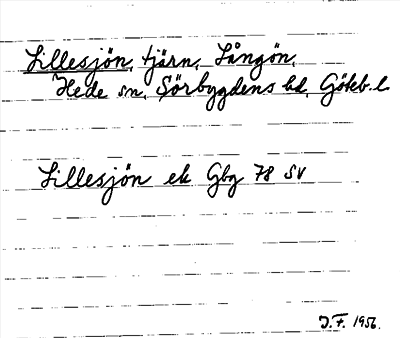 Lillesjön, tjärn, Långön,
Hede sn, Sörbygdens hd, Göteb. l.
Lillesjön ek Gbg 78 SV
J.F. 1956.